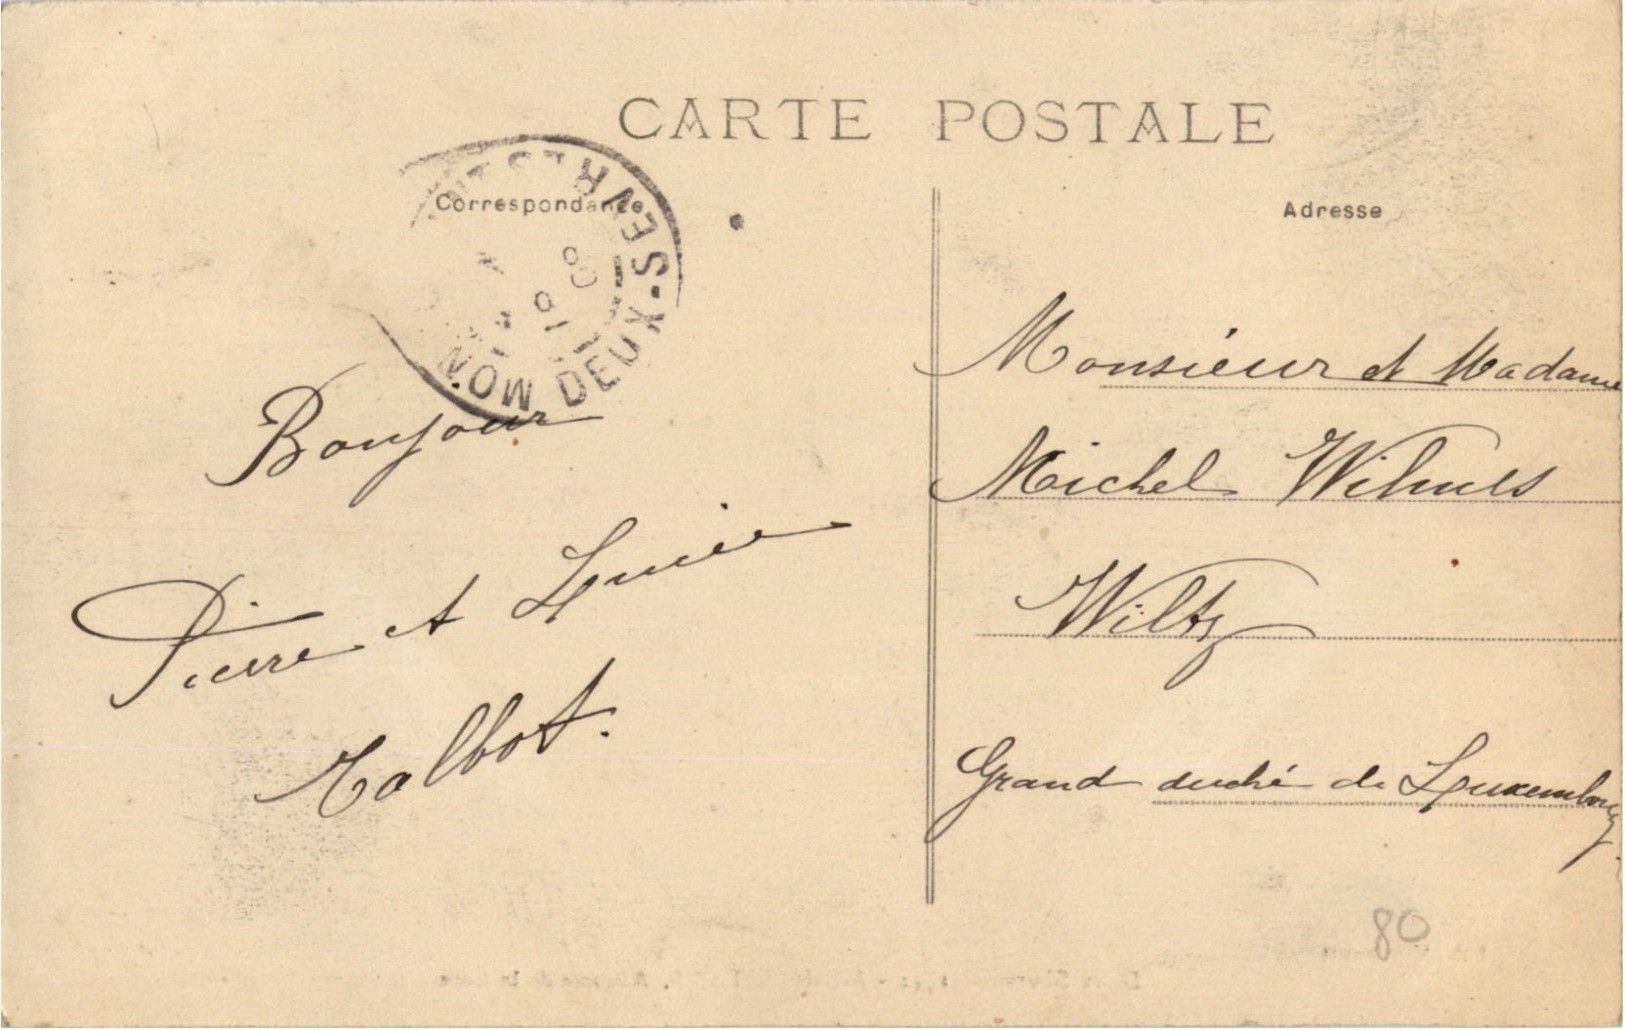 CARTE POSTALE
Correspondance
Adresse
DEUX-SEVRES
Bonjour
Pierre et Lucie
Talbot.
Monsieur et Madame
Michel Wilmes
Wiltz
Grand duché de Luxembourg
80